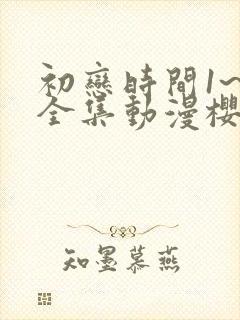 初戀時間1~
全集動漫櫻
知墨慕燕